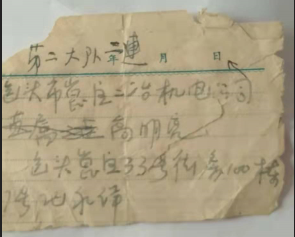 第二大队二连
年 月 日
包头市昆区二冶机电公司
高明亮
包头昆区33号街坊100栋
7号